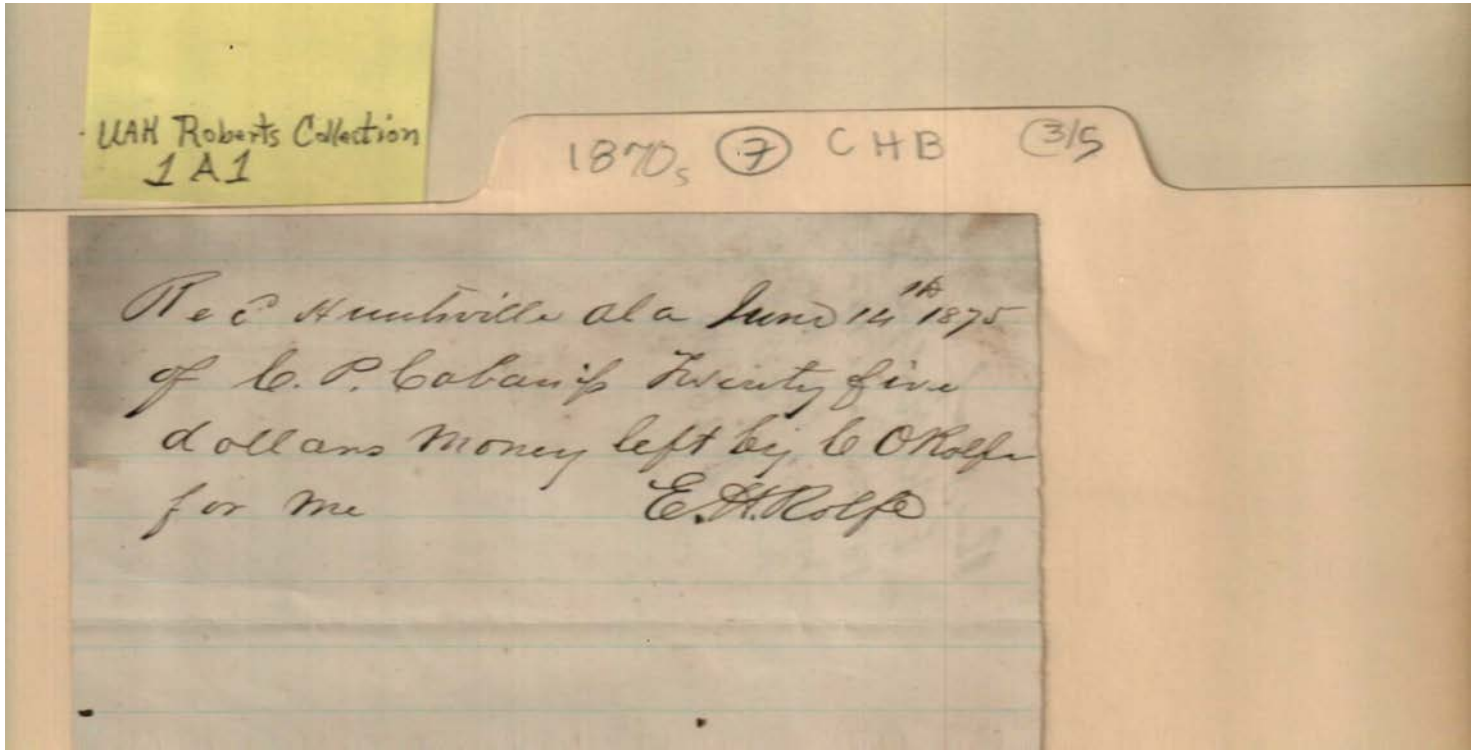 UAH Roberts Collection
1A1
1870s 7 CHB 3/5
Rec'd Huntsville Ala June 14th 1875
of C. P. Cabaniss Twenty five
dollars money left by C O Rolfe
for me E. H. Rolfe